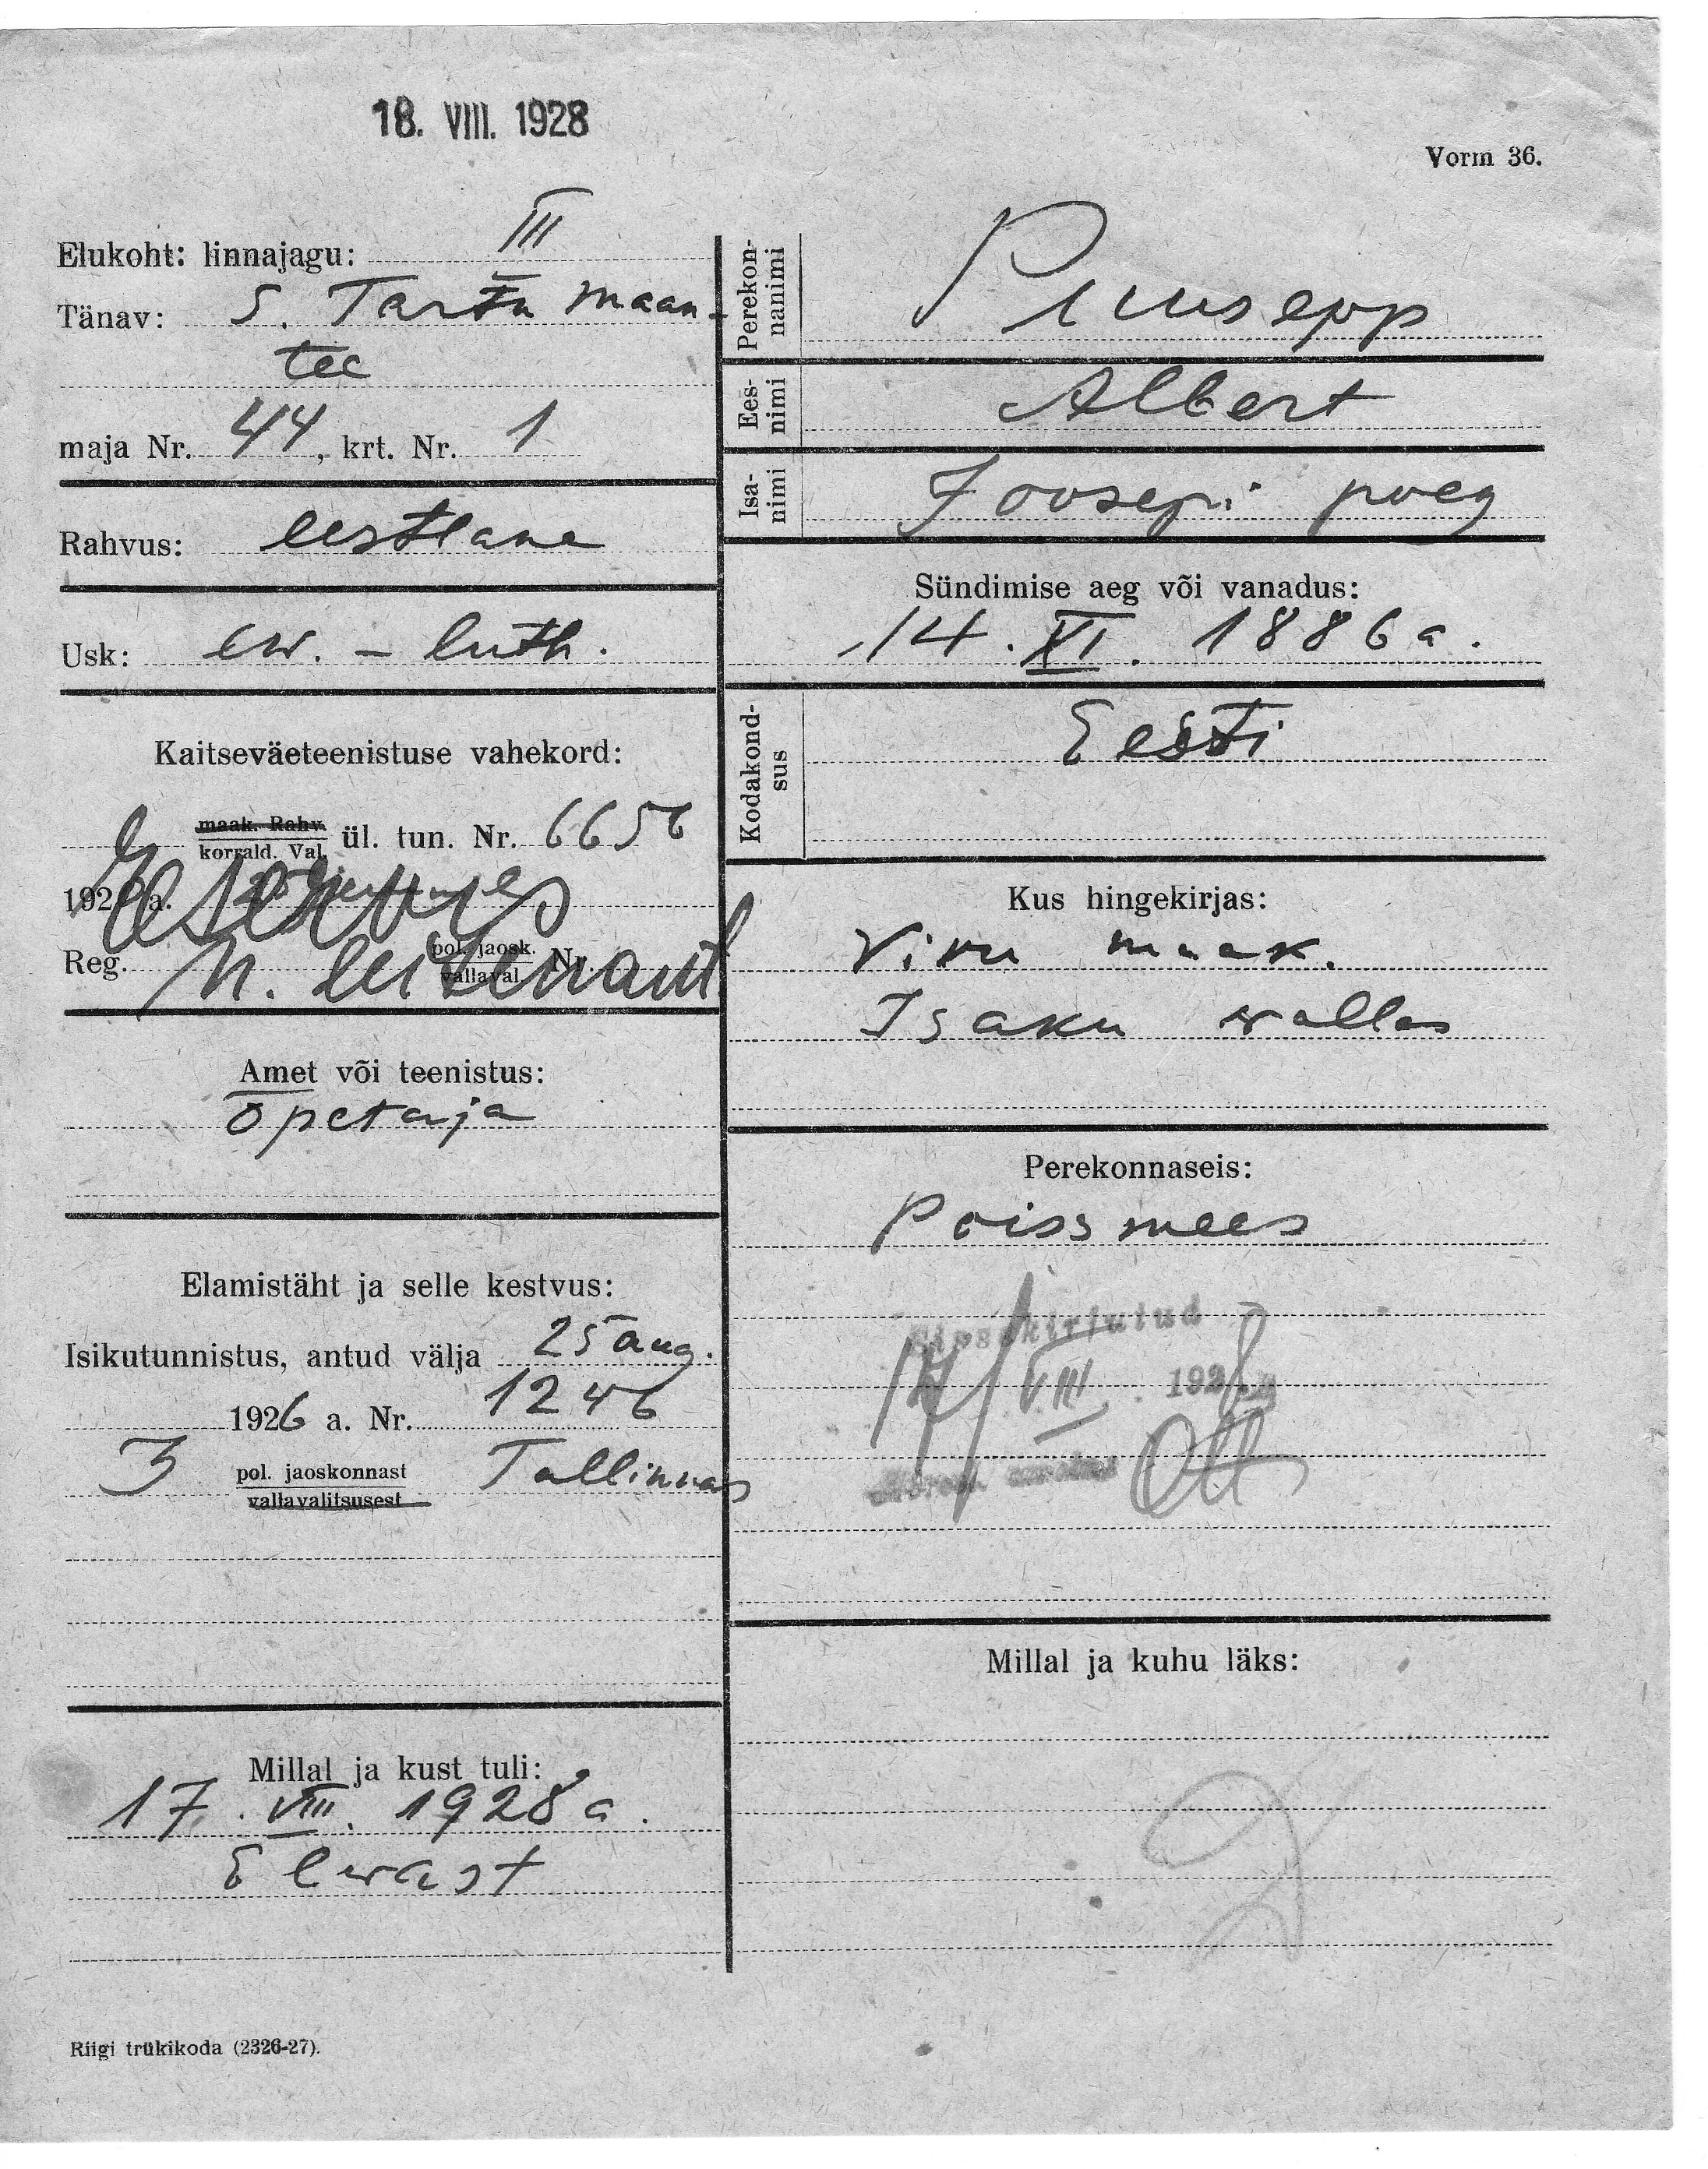 18. VIII. 1928
Vorm 36.
Elukoht: linnajagu: III
Tänav: S. Tartu maan-
tee
maja Nr. 44, krt. Nr. 1
Rahvus: eestlane
Usk: ew. - luth.
Kaitseväeteenistuse vahekord:
maak. Rahv.
korrald. Val. ül. tun. Nr. 6656
192 a.
Reg. pol. jaosk.
vallaval. Nr.
n. leitenant
Amet või teenistus:
õpetaja
Elamistäht ja selle kestvus:
Isikutunnistus, antud välja 25 aug.
1926 a. Nr. 1246
3 pol. jaoskonnast Tallinnas
vallavalitsusest
Millal ja kust tuli:
17. VIII. 1928 a.
Elwast
Riigi trükikoda (2326-27).
Perekon-
nanimi
Puusepp
Ees-
nimi
Albert
Isa-
nimi
Joosepi poeg
Sündimise aeg või vanadus:
14. XI. 1886 a.
Kodakond-
sus
Eesti
Kus hingekirjas:
Viru maak.
Isaku wallas
Perekonnaseis:
Poissmees
Sissekirjutud
17 VIII 1928
Millal ja kuhu läks: